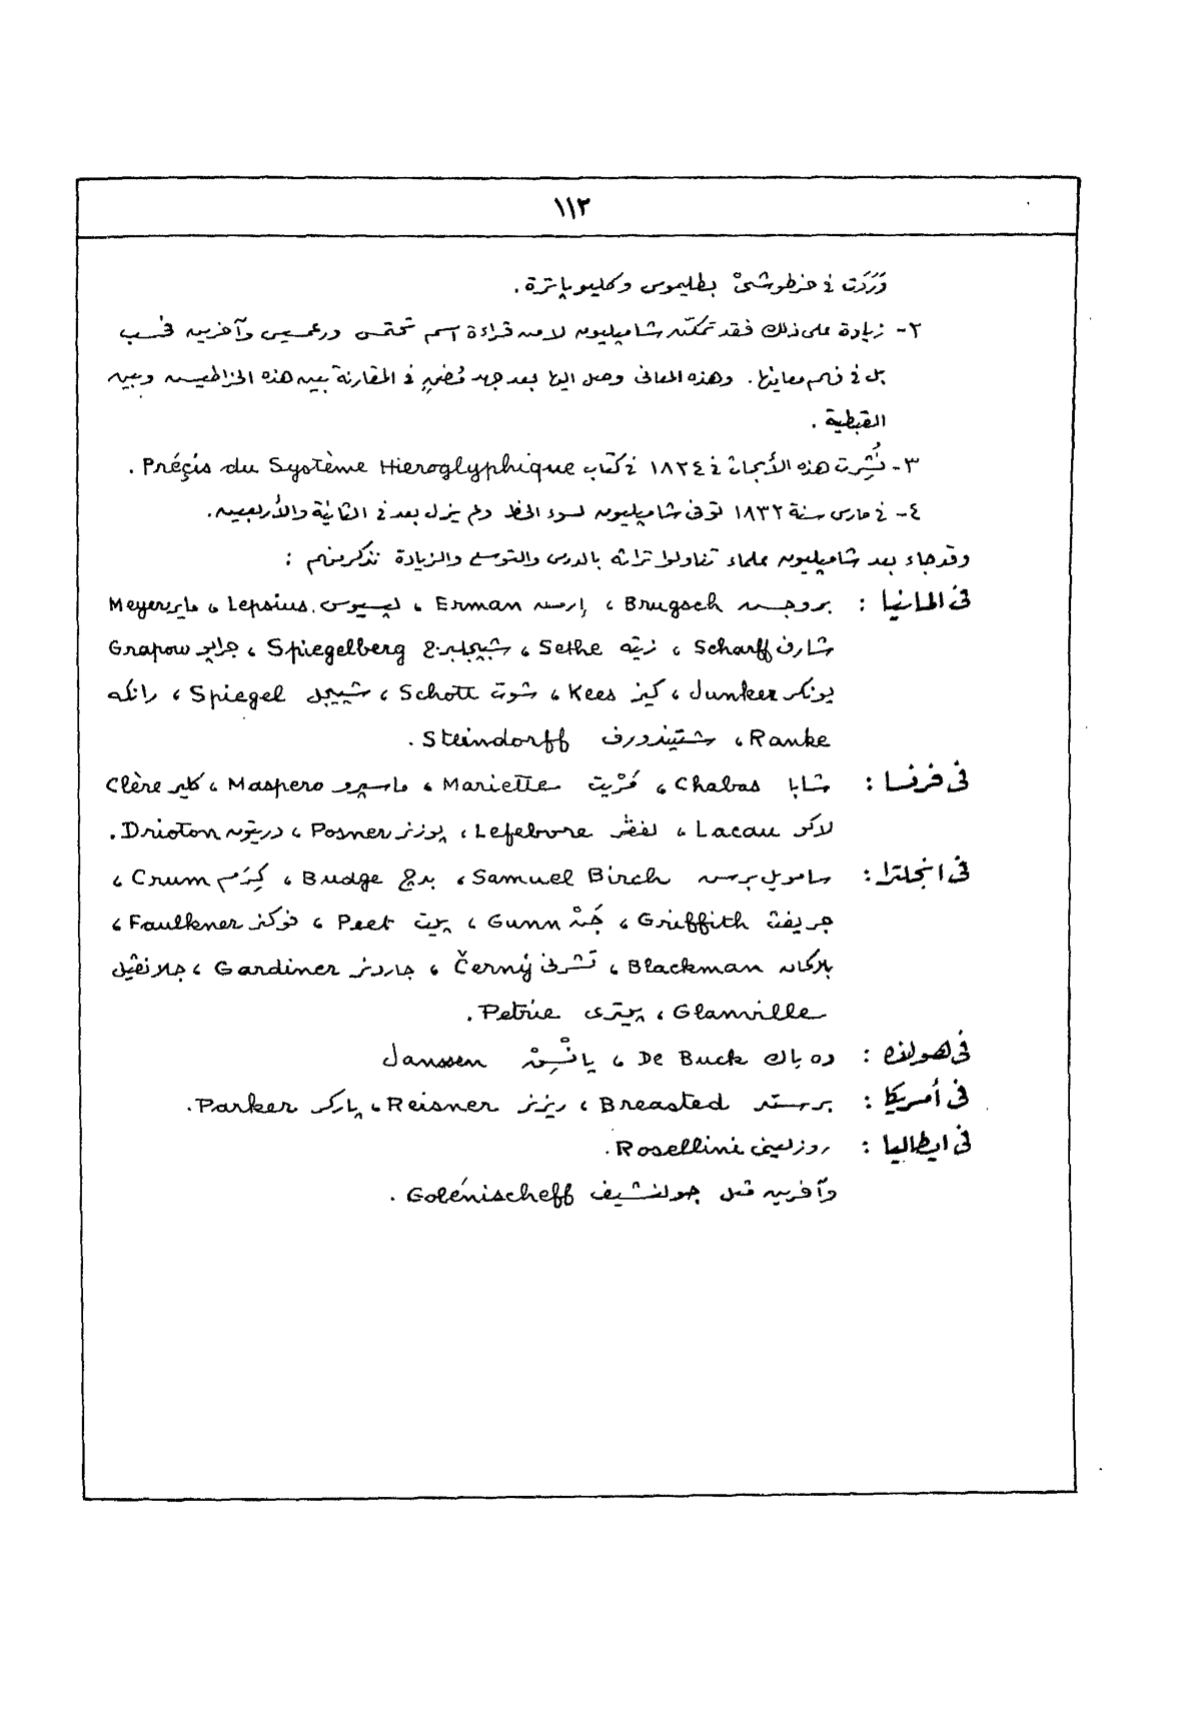 ١١٢
وَرَدَت فى خرطوشىْ بطليموس وكليوپاترة .
٢- زيادة على ذلك فقد تمكّن شامپليون لا من قراءة اسم تحتمس ورعمسيس وآخرين فحسب
بل فى فهم معاينها . وهذه المعانى وصل اليها بعد جهد مُضنٍ فى المقارنة بين هذه الخراطيش وبين
القبطية .
٣- نُشِرت هذه الأبحاث فى ١٨٢٤ فى كتاب Préçis du Système Hieroglyphique .
٤- فى مارس سنة ١٨٣٢ توفى شامپليون لسوء الحظ ولم يزل بعد فى الثانية والأربعين .
وقد جاء بعد شامپليون علماء تناولوا تراثه بالدرس والتوسع والزيادة نذكر منهم :
فى المانيا : بروجش Brugsch ، إرمن Erman ، لپسيوس Lepsius ، ماير Meyer
شارف Scharff ، زيته Sethe ، شبيجلبرج Spiegelberg ، جراپو Grapow
يونكر Junker ، كيز Kees ، شوت Schott ، شپيجل Spiegel ، رانكه
Ranke ، شتيندورف Steindorff .
فى فرنسا : شابا Chabas ، مَرْيت Mariette ، ماسپرو Maspero ، كلير Clère
لاكو Lacau ، لفڤر Lefebvre ، پوزنر Posner ، دريتون Drioton .
فى انجلترا : سامويل برش Samuel Birch ، بدچ Budge ، كِرَم Crum ،
جريفث Griffith ، جَنْ Gunn ، پيت Peet ، فوكنر Faulkner ،
بلاكمان Blackman ، تشرنى Černý ، جاردنر Gardiner ، جلانڤيل
Glanville ، پيترى Petrie .
فى هولنده : ده باك De Buck ، يانْسِنْ Janssen
فى أمريكا : برستد Breasted ، ريزنر Reisner ، پاركر Parker .
فى ايطاليا : روزلينى Rosellini .
وآخرين مثل جولنشيف Golénischeff .